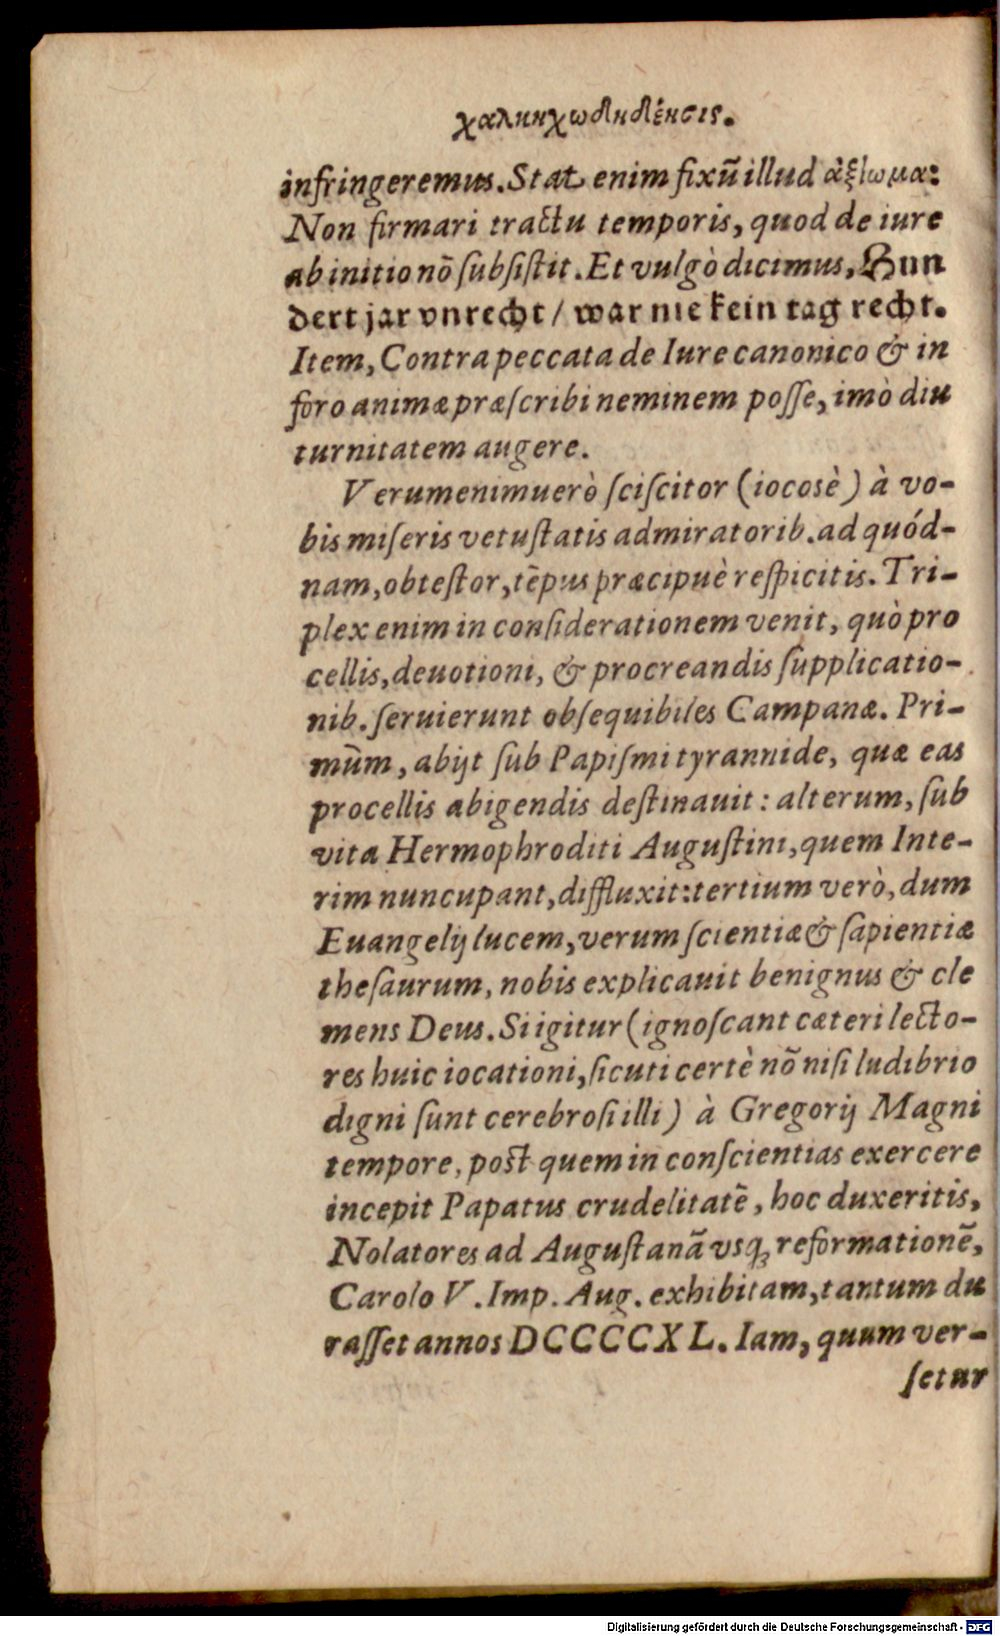 χαληηχωδηδένσις.
infringeremus. Stat enim fixū illud ἀξίωμα:
Non firmari tractu temporis, quod de iure
ab initio nō ſubſiſtit. Et vulgò dicimus, Hun
dert jar vnrecht / war nie kein tag recht.
Item, Contra peccata de Iure canonico & in
foro animæ præſcribi neminem poſſe, imò diu
turnitatem augere.
Verumenimuerò ſciſcitor (iocosè) à vo-
bis miſeris vetuſtatis admiratorib. ad quód-
nam, obteſtor, tēpus præcipuè reſpicitis. Tri-
plex enim in conſiderationem venit, quò pro
cellis, deuotioni, & procreandis ſupplicatio-
nib. ſeruierunt obſequibiles Campanæ. Pri-
mūm, abijt ſub Papiſmi tyrannide, quæ eas
procellis abigendis deſtinauit: alterum, ſub
vita Hermophroditi Auguſtini, quem Inte-
rim nuncupant, diffluxit: tertium verò, dum
Euangelij lucem, verum ſcientiæ & ſapientiæ
theſaurum, nobis explicauit benignus & cle
mens Deus. Si igitur (ignoſcant cæteri lecto-
res huic iocationi, ſicuti certè nō niſi ludibrio
digni ſunt cerebroſi illi) à Gregorij Magni
tempore, poſt quem in conſcientias exercere
incepit Papatus crudelitatē, hoc duxeritis,
Nolatores ad Auguſtanā vsq; reformationē,
Carolo V. Imp. Aug. exhibitam, tantum du
raſſet annos DCCCCXL. Iam, quum ver-
ſetur
Digitalisierung gefördert durch die Deutsche Forschungsgemeinschaft - DFG